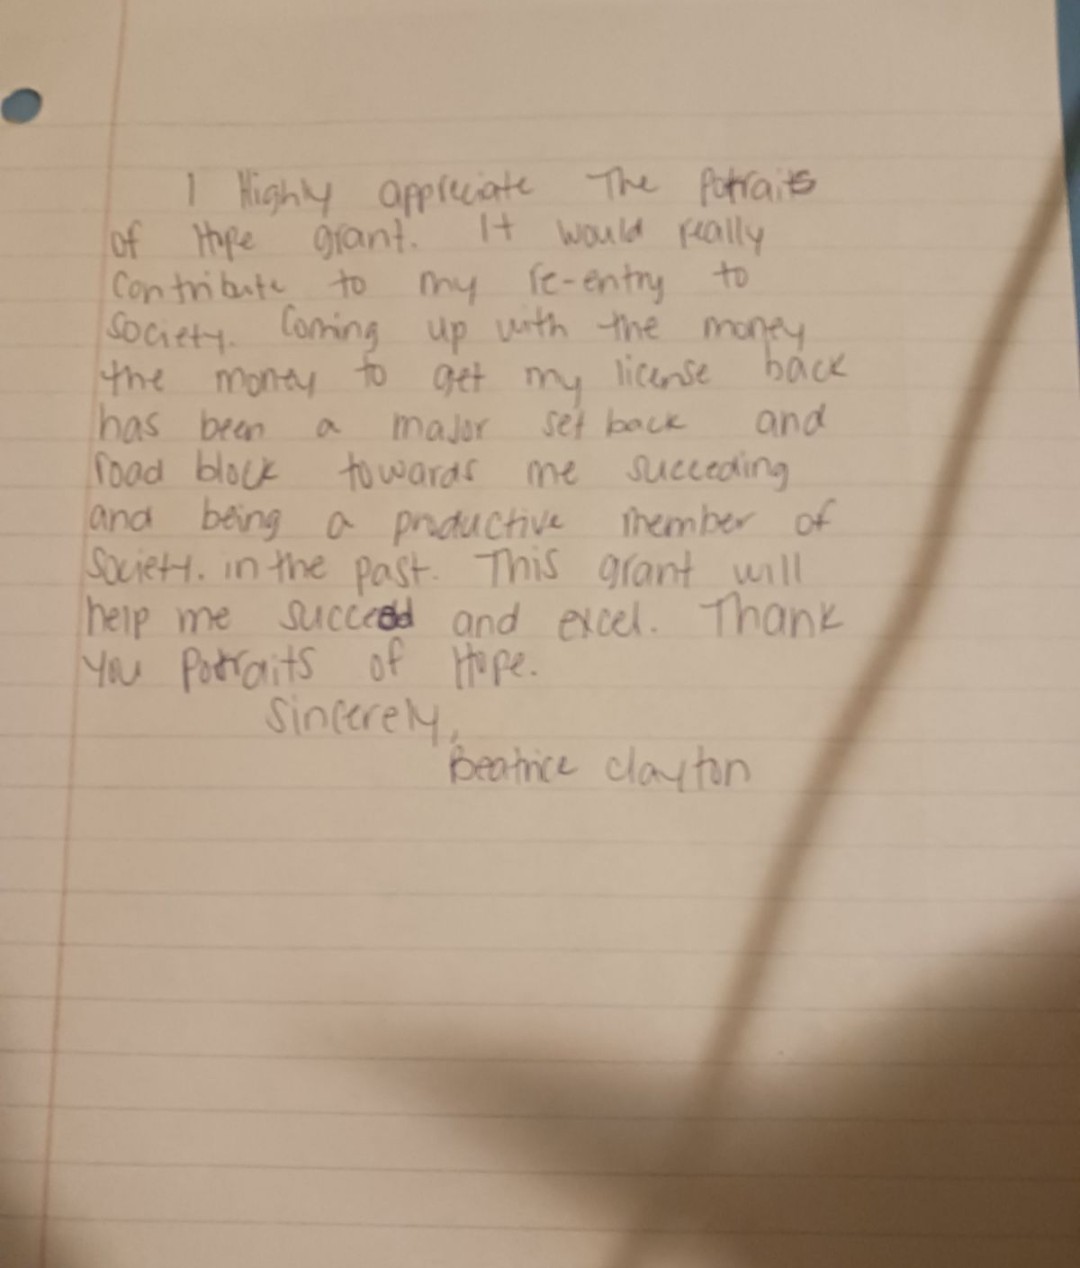 I Highly appreciate The Potraits
of Hope grant. It would really
Contribute to my re-entry to
Society. Coming up with the money
the money to get my license back
has been a major set back and
road block towards me succeding
and being a productive member of
Society. in the past. This grant will
help me succeed and excel. Thank
you Potraits of Hope.
Sincerely,
Beatrice Clayton